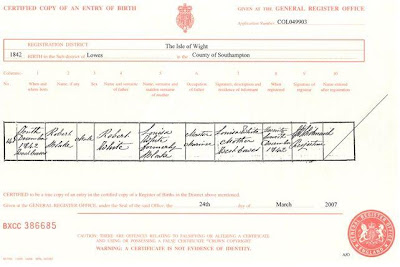 CERTIFIED COPY OF AN ENTRY OF BIRTH
GIVEN AT THE GENERAL REGISTER OFFICE
Application Number COL049903
REGISTRATION DISTRICT The Isle of Wight
1842 BIRTH in the Sub-district of Lowes in the County of Southampton
Columns:- 1 2 3 4 5 6 7 8 9 10
No. When and where born Name, if any Sex Name and surname of father Name, surname and maiden surname of mother Occupation of father Signature, description and residence of informant When registered Signature of registrar Name entered after registration
December 1842 West Cowes
Robert
Male
Robert White
Louisa White formerly
Master Mariner
Louisa White Mother West Cowes
December 1842
Registrar
CERTIFIED to be a true copy of an entry in the certified copy of a Register of Births in the District above mentioned.
Given at the GENERAL REGISTER OFFICE, under the Seal of the said Office, the 24th day of March 2007
BXCC 386685
CAUTION: THERE ARE OFFENCES RELATING TO FALSIFYING OR ALTERING A CERTIFICATE
AND USING OR POSSESSING A FALSE CERTIFICATE ©CROWN COPYRIGHT
WARNING: A CERTIFICATE IS NOT EVIDENCE OF IDENTITY.
GENERAL REGISTER OFFICE
ENGLAND